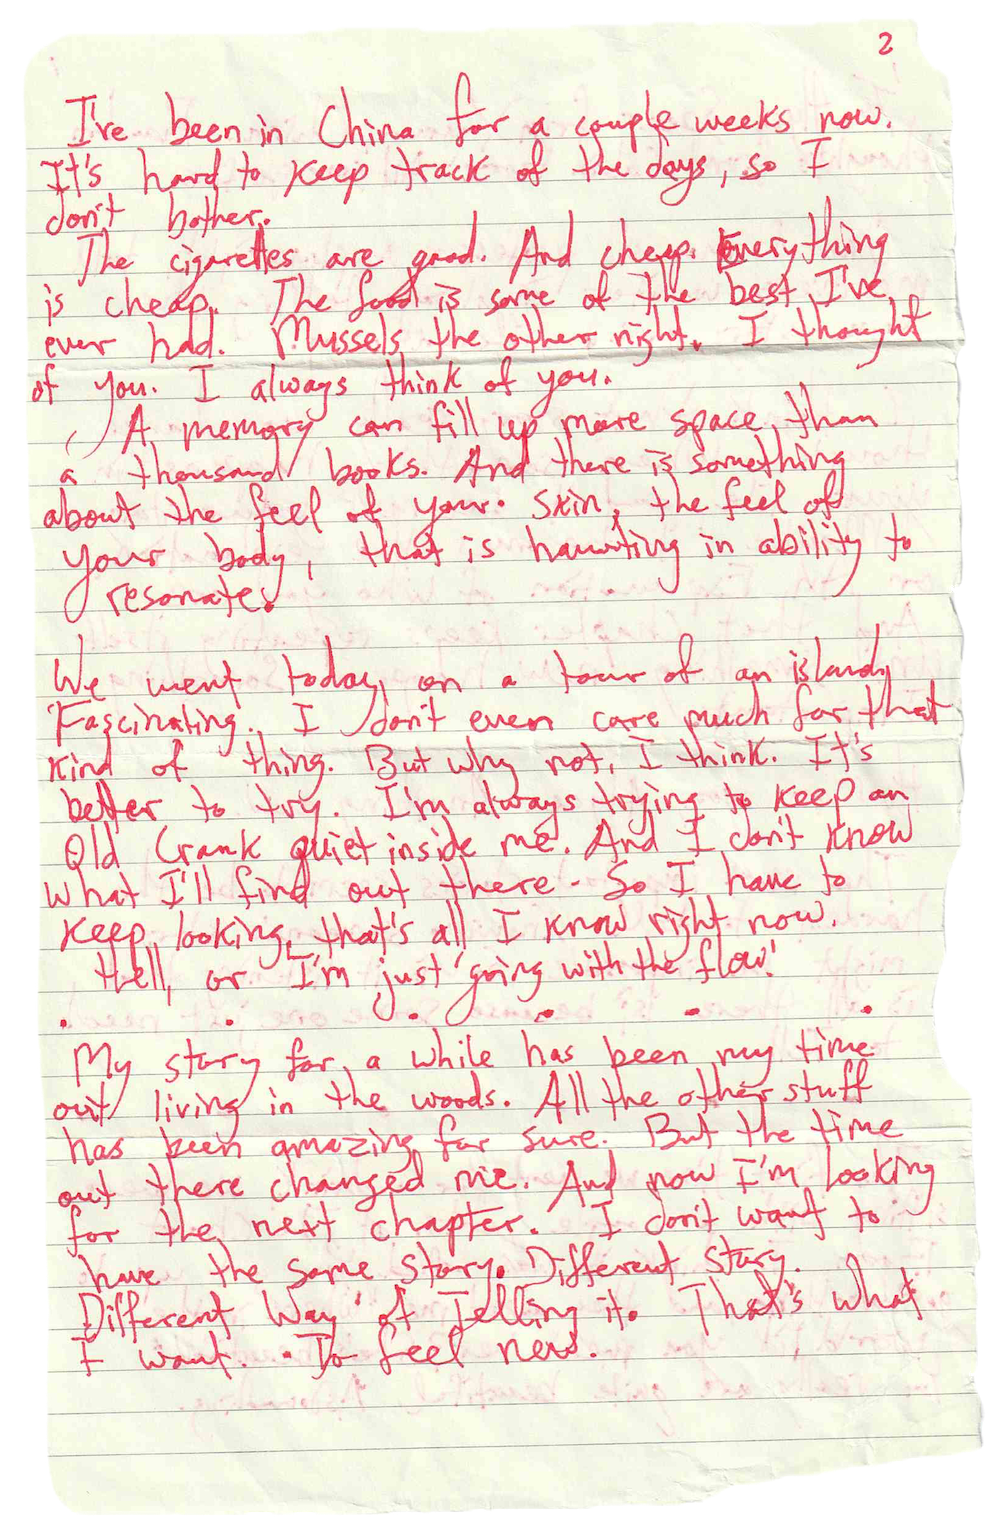 2
I've been in China for a couple weeks now.
It's hard to keep track of the days, so I
don't bother.
The cigarettes are good. And cheap. Everything
is cheap. The food is some of the best I've
ever had. Mussels the other night. I thought
of you. I always think of you.
A memory can fill up more space than
a thousand books. And there is something
about the feel of your skin, the feel of
your body, that is haunting in ability to
resonate.
We went today on a tour of an island,
Fascinating. I don't even care much for that
kind of thing. But why not, I think. It's
better to try. I'm always trying to keep an
Old Crank quiet inside me. And I don't know
what I'll find out there - So I have to
keep looking, that's all I know right now.
Hell, or I'm just 'going with the flow!'
. . . . . .
My story for a while has been my time
out living in the woods. All the other stuff
has been amazing for sure. But the time
out there changed me. And now I'm looking
for the next chapter. I don't want to
have the same story. Different story.
Different Way of Telling it. That's what
I want. To feel new.